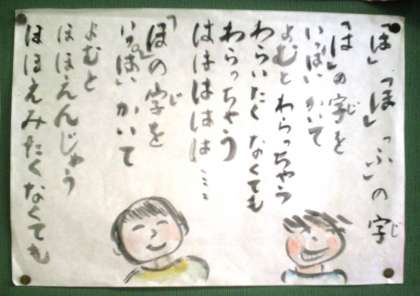 「は」「ほ」「ふ」の字
「は」の字を
いっぱいかいて
よむとわらっちゃう
わらいたくなくても
わらっちゃう
はははははは…
「ほ」の字を
いっぱいかいて
よむと
ほほえんじゃう
ほほえみたくなくても